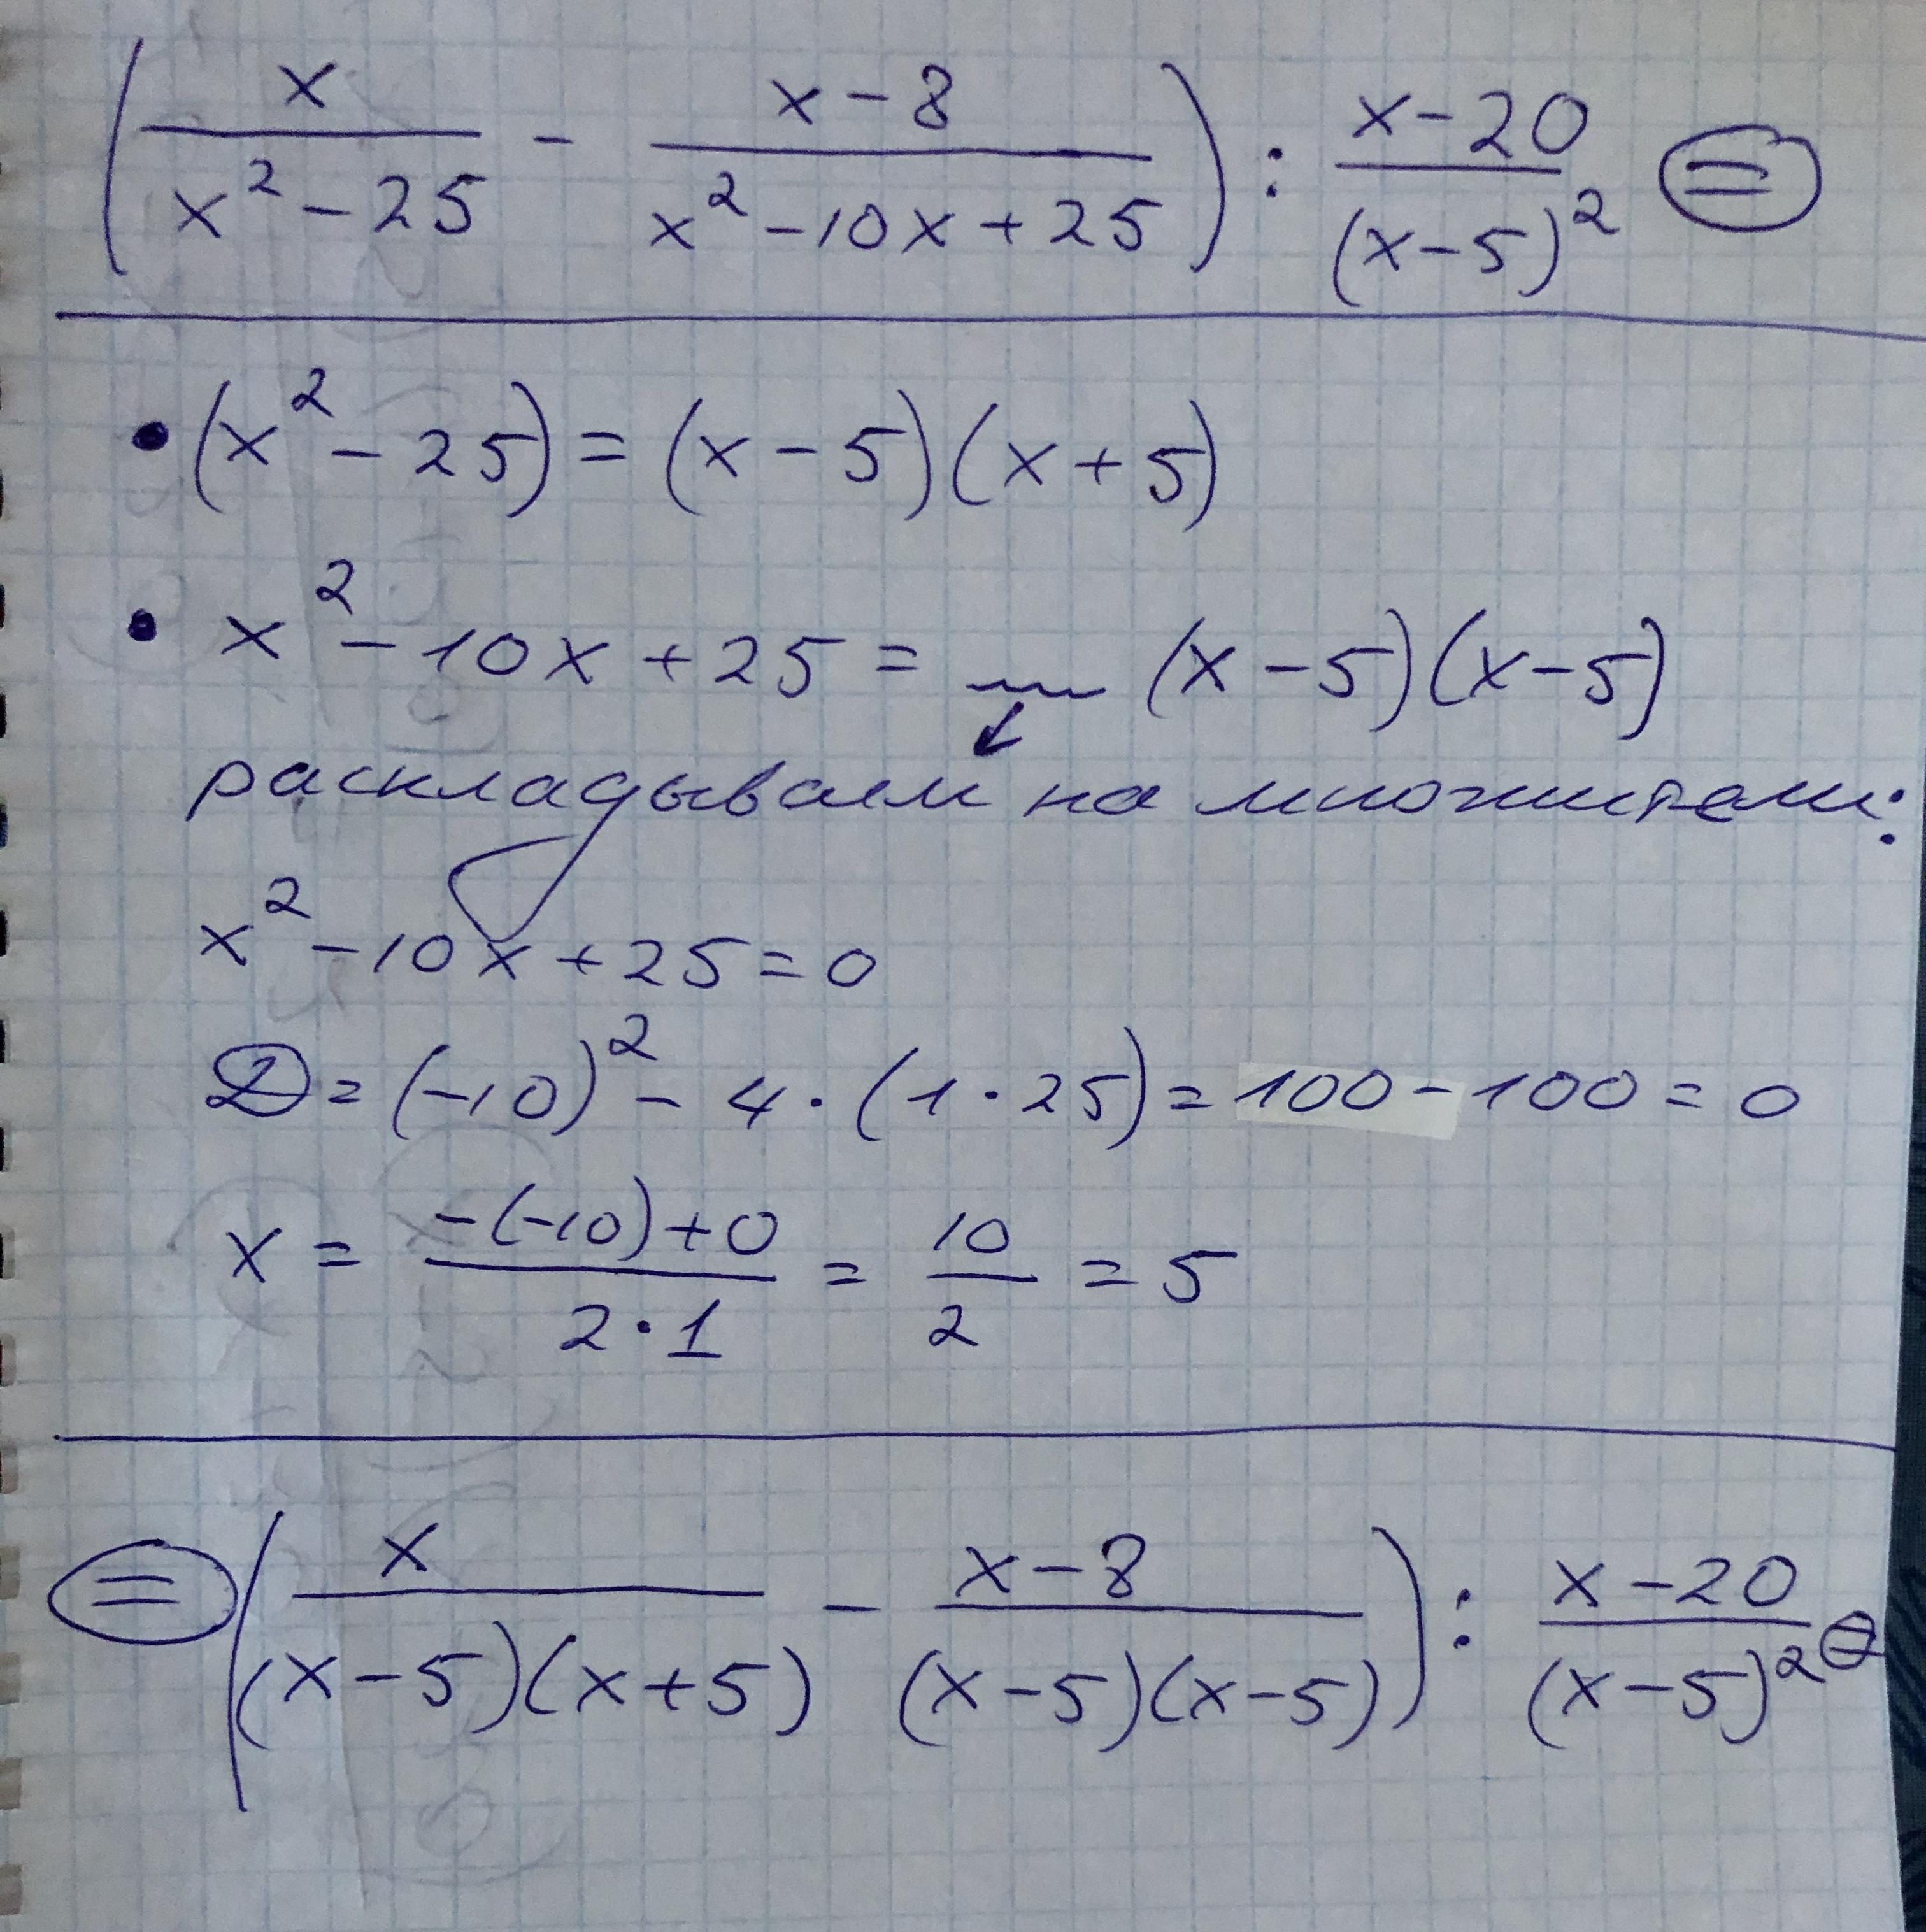 (x/(x²-25) - (x-8)/(x²-10x+25)) : (x-20)/(x-5)² =
• (x²-25) = (x-5)(x+5)
• x²-10x+25 = (x-5)(x-5)
раскладываем на множители:
x²-10x+25=0
D = (-10)² - 4·(1·25) = 100-100 = 0
x = (-(-10)+0)/(2·1) = 10/2 = 5
= (x/((x-5)(x+5)) - (x-8)/((x-5)(x-5))) : (x-20)/(x-5)² =